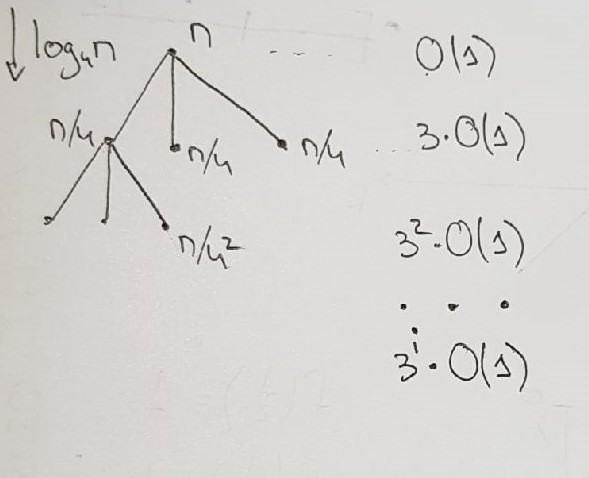 ↓ log₄n n .... O(1)
n/4 n/4 n/4 ... 3·O(1)
n/4² 3²·O(1)
. . .
3ⁱ·O(1)